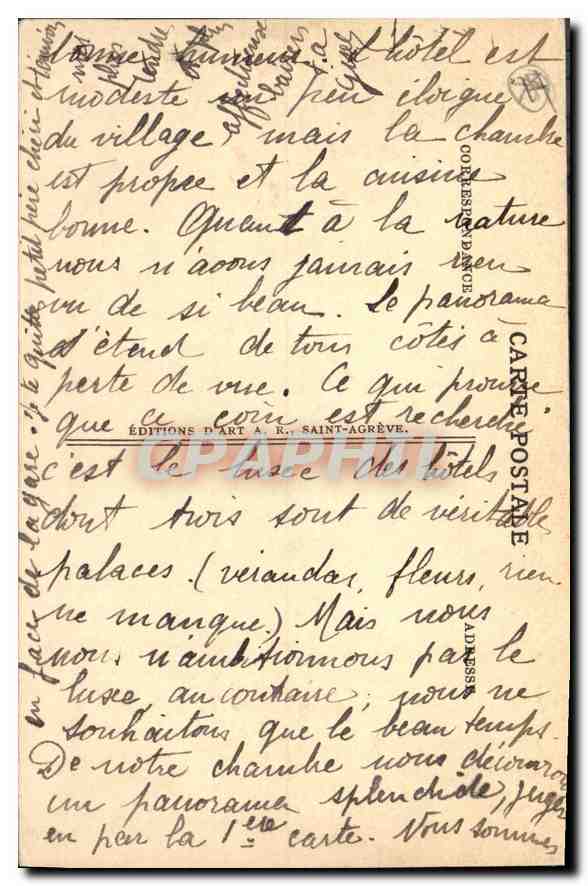 bonne humeur. L'hôtel est
modeste un peu éloigné
du village, mais la chambre
est propre et la cuisine
bonne. Quant à la nature
nous n'avons jamais rien
vu de si beau. Le panorama
s'étend de tous côtés à
perte de vue. Ce qui prouve
que ce coin est recherché
c'est le luxe des hôtels
dont trois sont de véritables
palaces. (vérandas, fleurs, rien
ne manque.) Mais nous
nous n'ambitionnons pas le
luxe, au contraire, nous ne
souhaitons que le beau temps.
De notre chambre nous découvrons
un panorama splendide, jugez
en par la 1ère carte. Nous sommes
en face de la gare. Je te quitte petit père chéri et
nos plus tendres
affectueux baisers
CORRESPONDANCE
CARTE POSTALE
ADRESSE
ÉDITIONS D'ART A. R., SAINT-AGRÈVE.
CPAPHIL